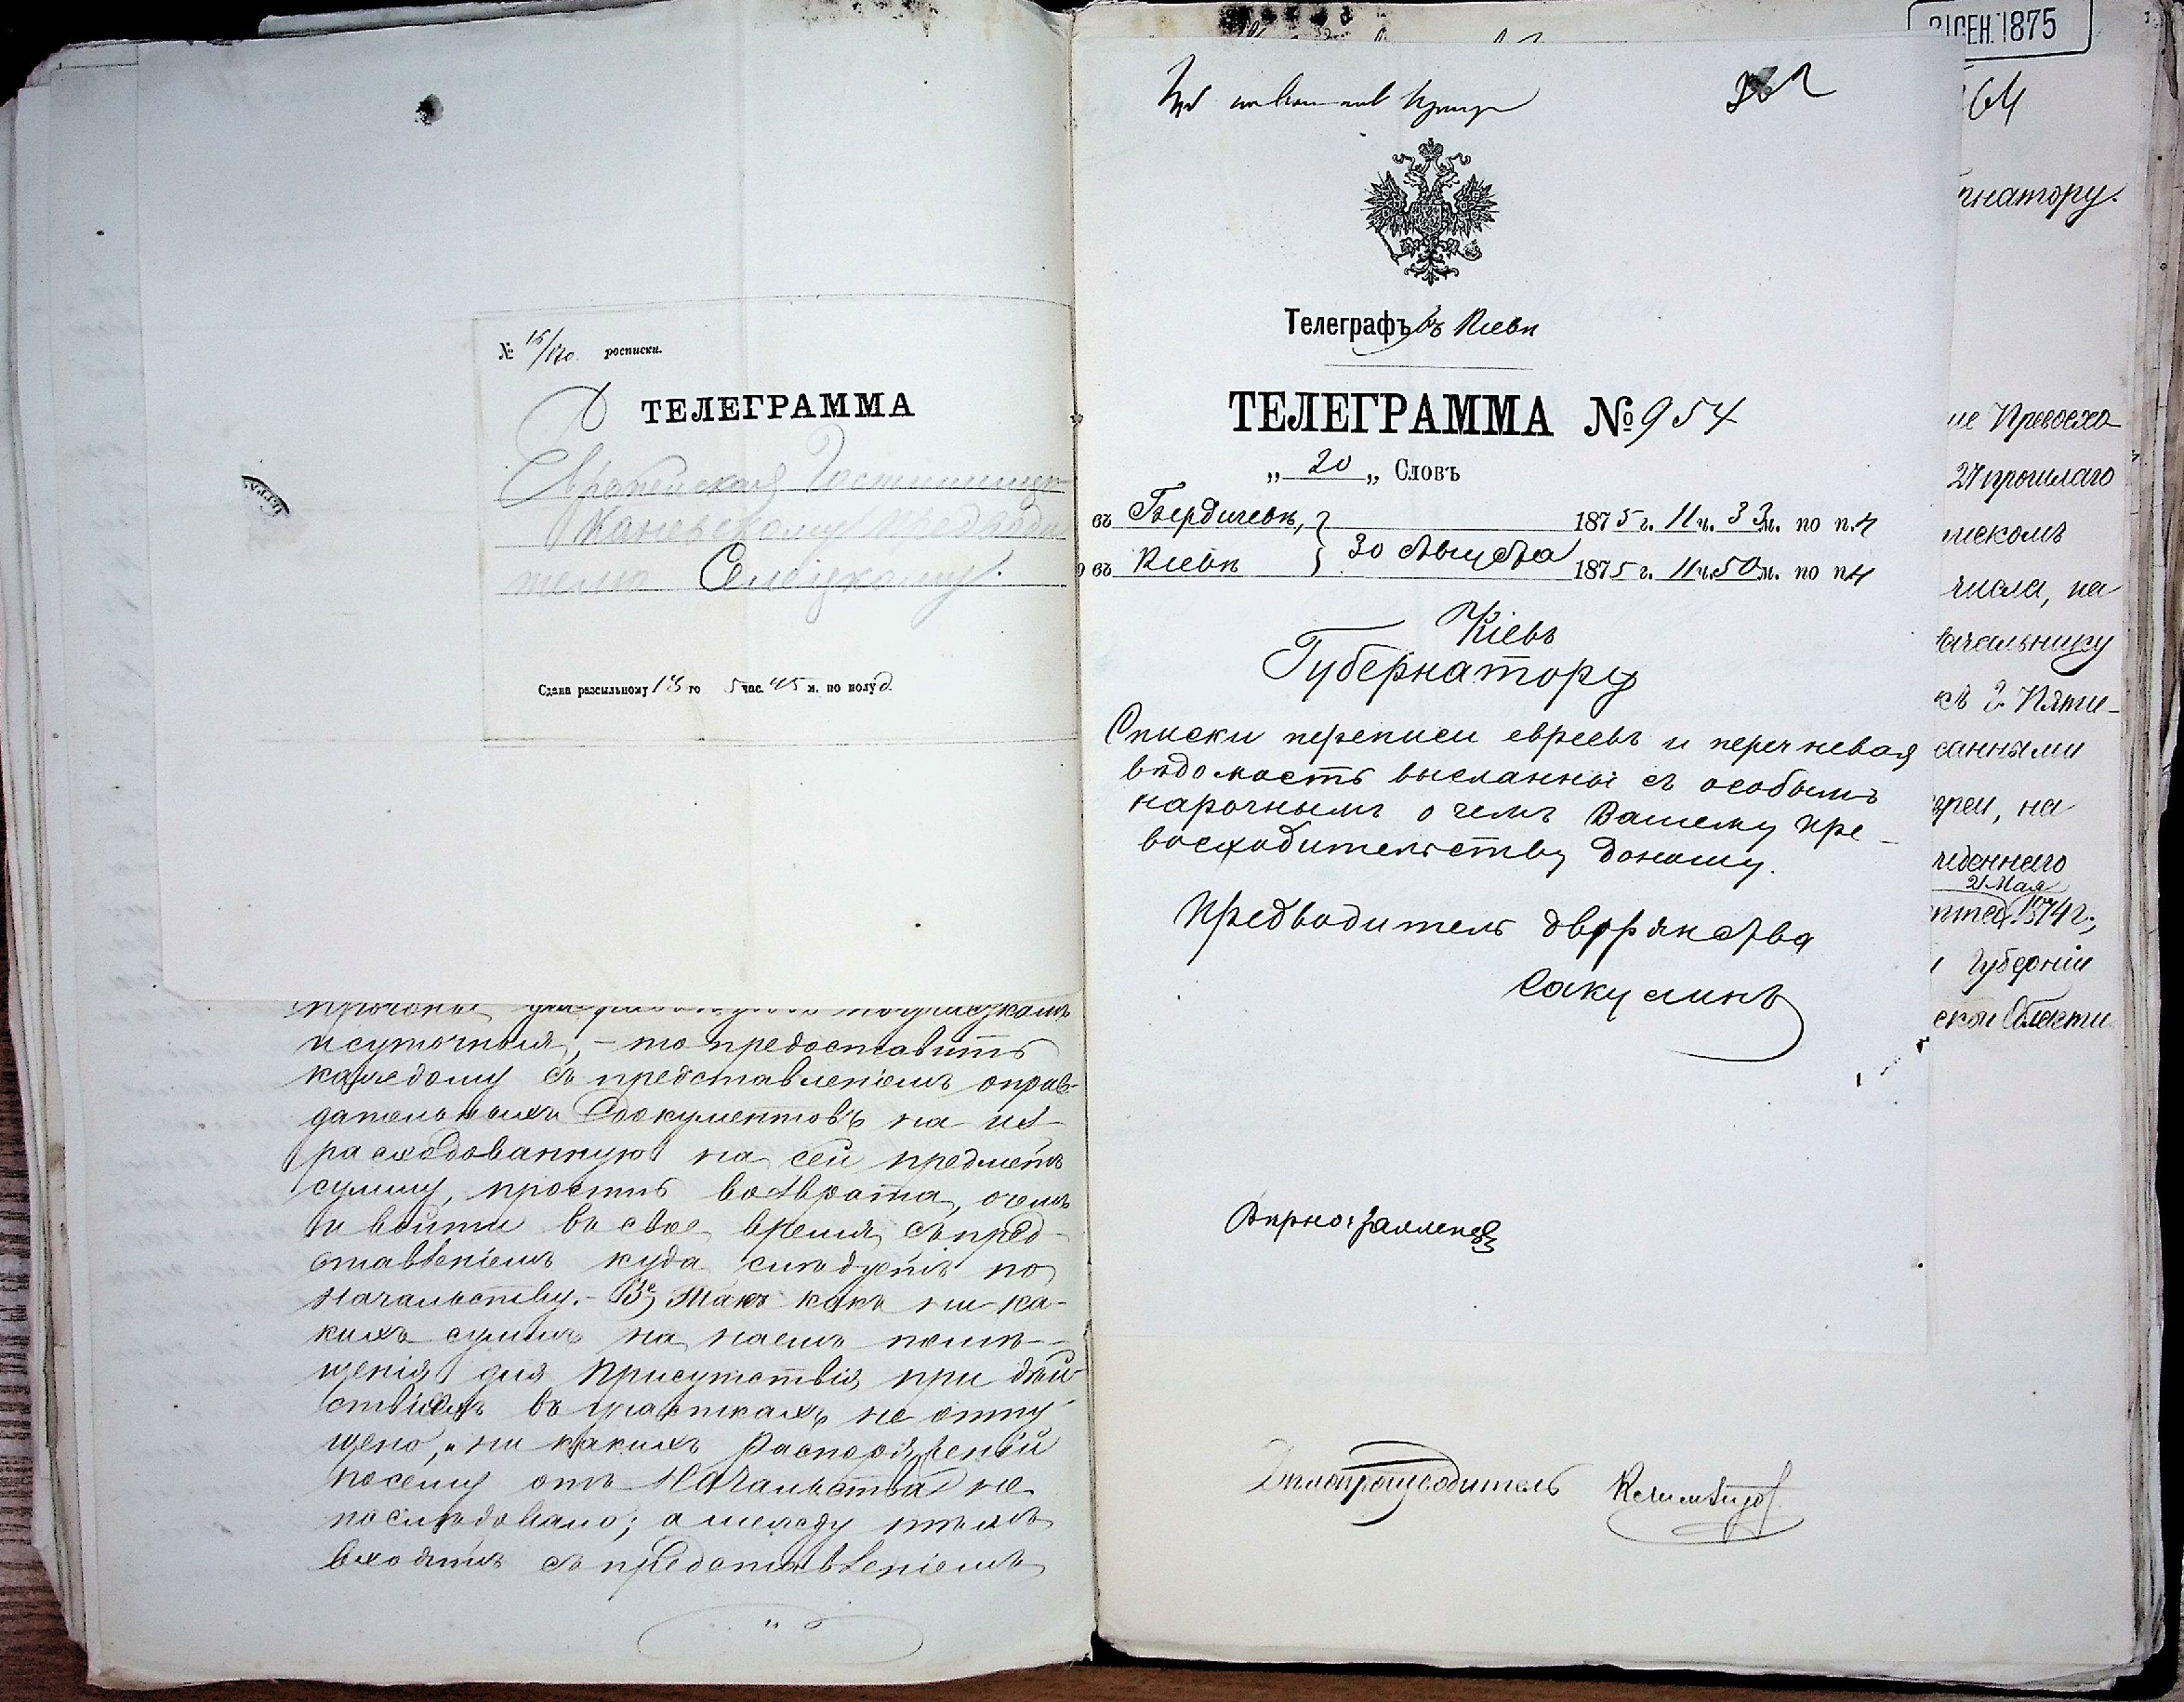 № 15/170. росписки.
ТЕЛЕГРАММА
Европейская Гостинница
Каневскому предводи
телю Селецкому.
Сдана разсыльному 13 го 5 час. 45 м. по полуд.
и суточныя, – то предоставить
каждому съ представленіемъ оправ-
дательныхъ документовъ на из
расходованную на сей предметъ
сумму, просить возврата, о чемъ
и войти въ свое время съ пред-
ставленіемъ куда слѣдуетъ по
Начальству. – 3е) Такъ какъ ни ка-
кихъ суммъ на наемъ помѣ-
щенія для Присутствія при дѣй
ствіяхъ въ участкахъ не отпу
щено, и ни какихъ распоряженій
посему отъ Начальства не
послѣдовало; а между тѣмъ
входятъ съ представленіемъ
СЕН. 1875
Телеграфъ въ Кіевѣ
ТЕЛЕГРАММА № 954
„ 20 „ Словъ
въ Бердичевѣ, 1875 г. 11 ч. 33 м. по п.н
въ Кіевѣ 30 Августа 1875 г. 11 ч. 50 м. по пн
Кіевъ
Губернатору
Списки переписи евреевъ и перечневая
вѣдомость высланы съ особымъ
нарочнымъ о чемъ Вашему Пре-
восходительству доношу.
Предводитель дворянства
Сакулинъ
Вѣрно:
Дѣлопроизводитель
64
рнатору.
ше Превосхо-
27 прошлаго
числа, на
ачальнику
къ 2. Пяти-
санными
на
жденнаго
21 Мая
1874 г.,
и Губерніи
ской Области